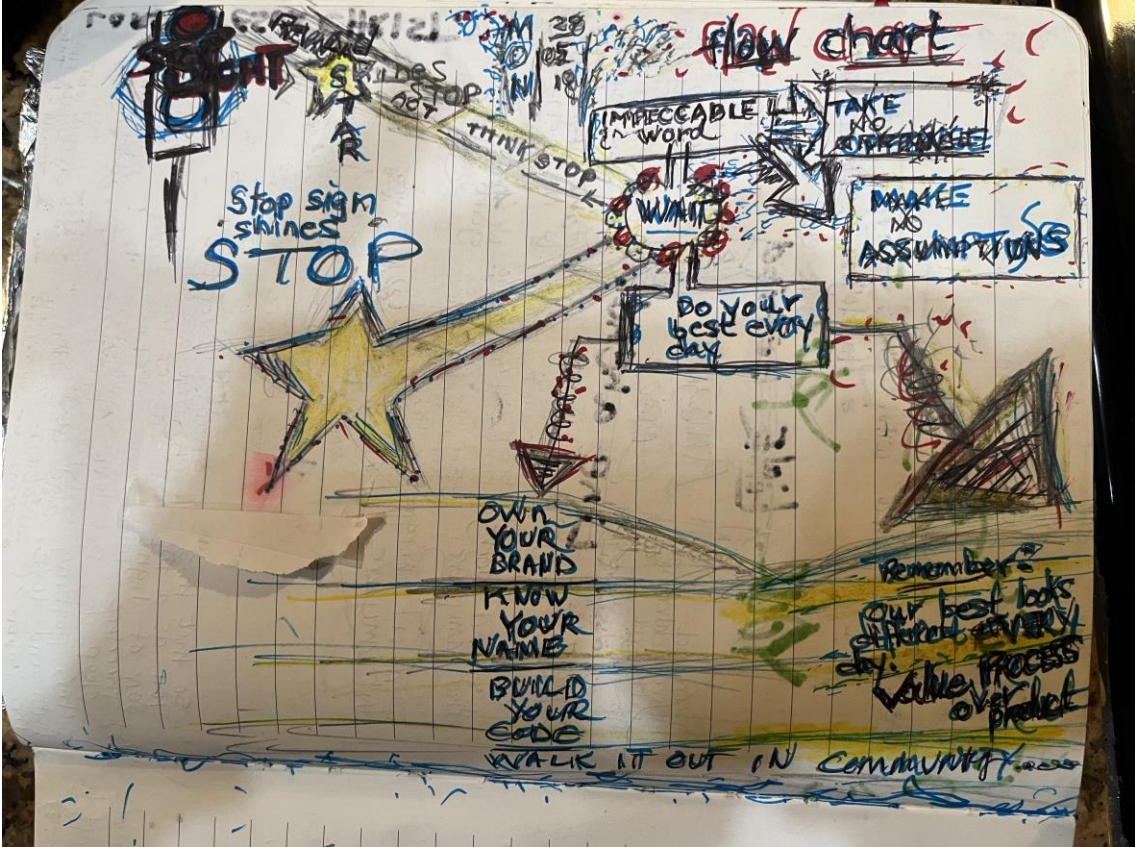 flow chart
M 28
O 05
N 18
STAR
shines
STOP
ACT
THINK STOP
IMPECCABLE
in word
TAKE
NO
OFFENSE
WAIT
MAKE
NO
ASSUMPTIONS
Stop sign
shines
STOP
Do your
best every
day
OWN
YOUR
BRAND
KNOW
YOUR
NAME
BUILD
YOUR
CODE
WALK IT OUT IN COMMUNITY....
Remember:
our best looks
different EVERY
day.
Value PROCESS
over
product